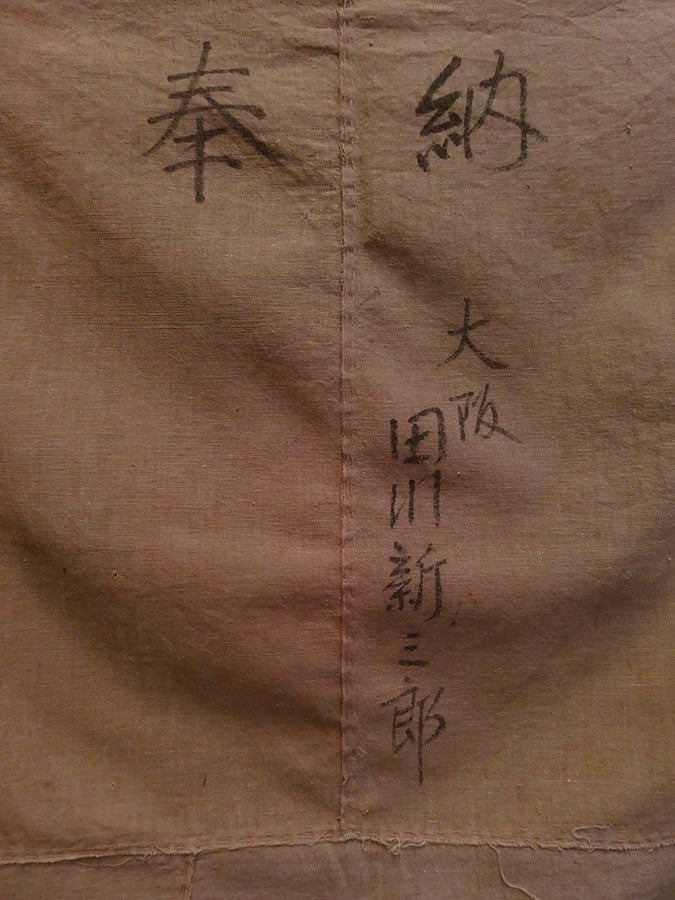 奉納
大阪
田川新三郎